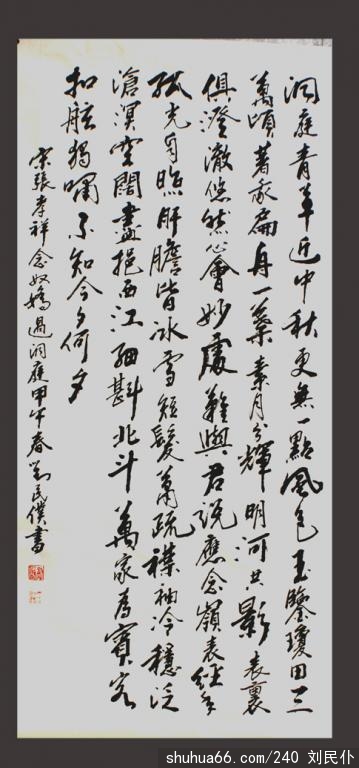 洞庭青草近中秋更無一點風色玉鑒瓊田三
萬頃著我扁舟一葉素月分輝明河共影表裏
俱澄澈悠然心會妙處難與君說應念嶺表經年
孤光自照肝膽皆冰雪短髮蕭疏襟袖冷穩泛
滄溟空闊盡挹西江細斟北斗萬象為賓客
扣舷獨嘯不知今夕何夕
宋張孝祥念奴嬌過洞庭甲午春劉民僕書
shuhua66.com/240 刘民仆